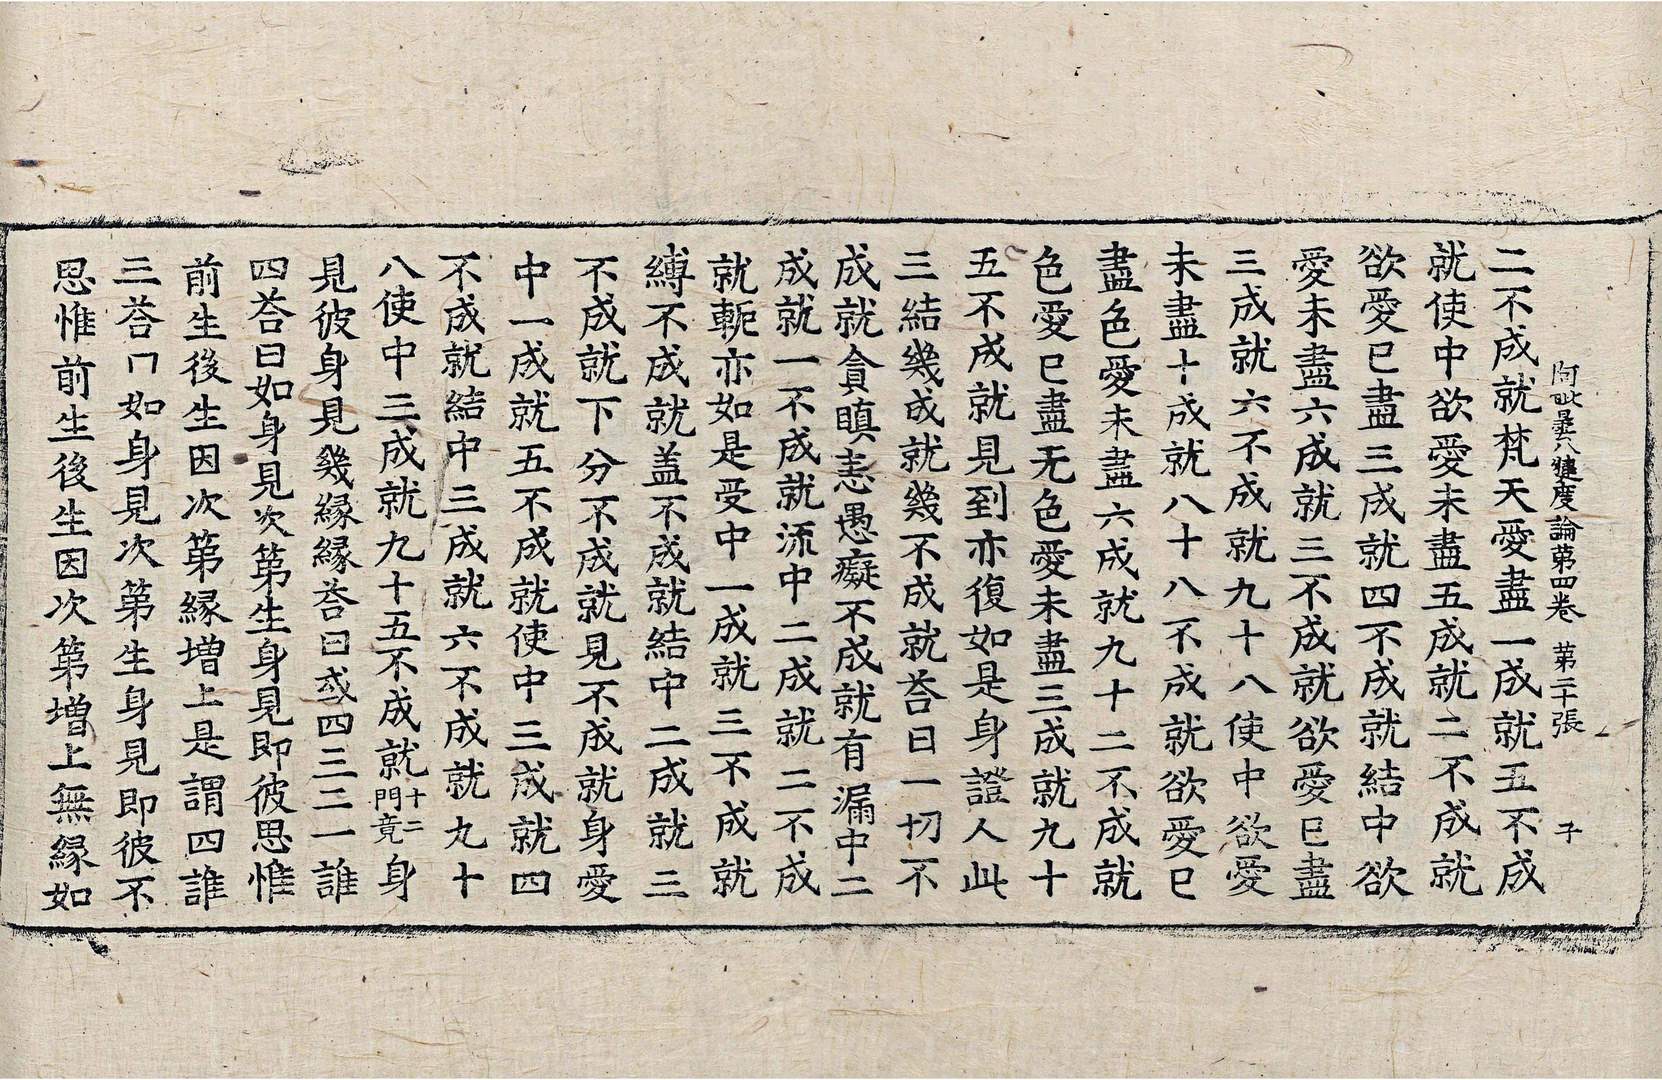 阿毗曇八犍度論第四卷 第二十張 子
二不成就梵天愛盡一成就五不成
就使中欲愛未盡五成就二不成就
欲愛已盡三成就四不成就結中欲
愛未盡六成就三不成就欲愛已盡
三成就六不成就九十八使中欲愛
未盡十成就八十八不成就欲愛已
盡色愛未盡六成就九十二不成就
色愛已盡无色愛未盡三成就九十
五不成就見到亦復如是身證人此
三結幾成就幾不成就荅曰一切不
成就貪瞋恚愚癡不成就有漏中二
成就一不成就流中二成就二不成
就軛亦如是受中一成就三不成就
縛不成就盖不成就結中二成就三
不成就下分不成就見不成就身愛
中一成就五不成就使中三成就四
不成就結中三成就六不成就九十
八使中三成就九十五不成就十二門竟身
見彼身見幾緣緣荅曰或四三二一誰
四荅曰如身見次第生身見即彼思惟
前生後生因次第緣增上是謂四誰
三荅曰如身見次第生身見即彼不
思惟前生後生因次第增上無緣如